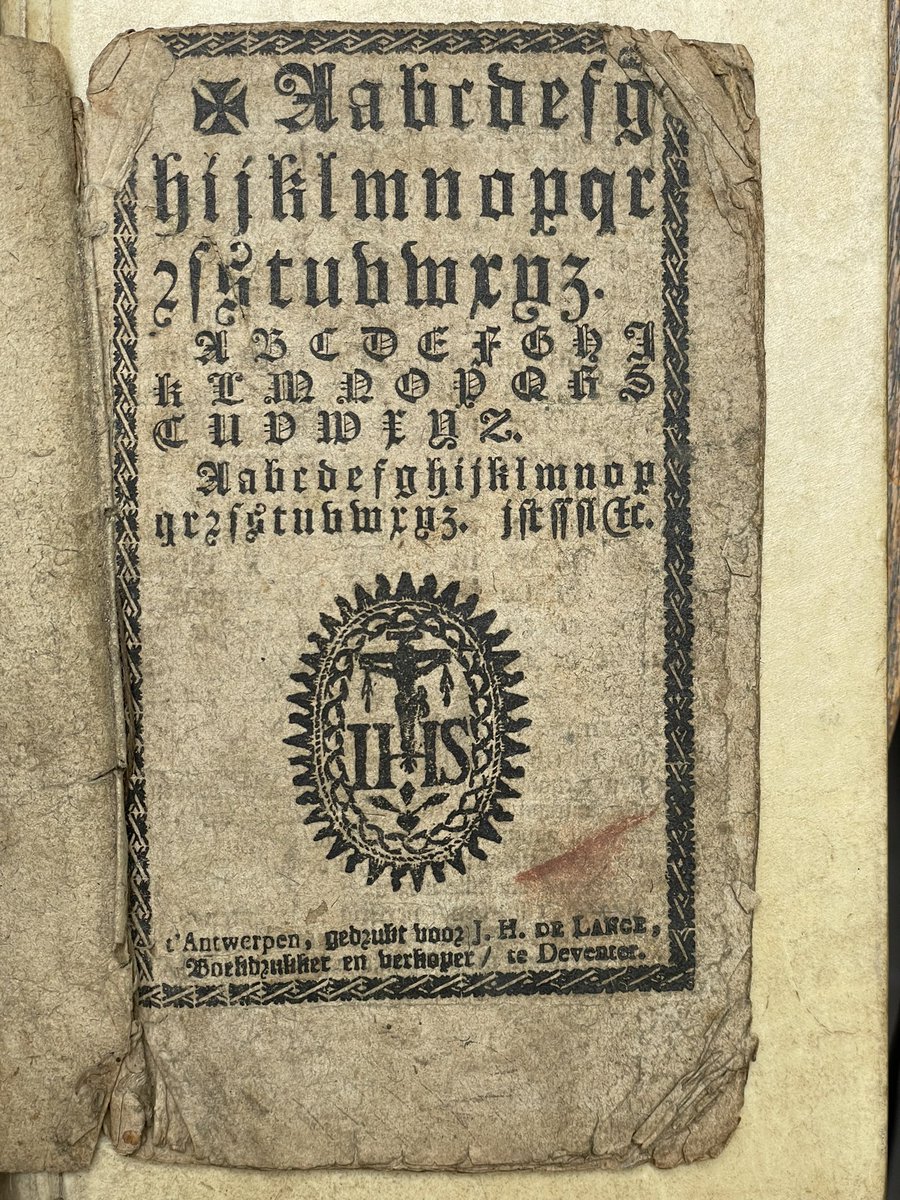 ✠ Aabcdefg
hijklmnopqr
ꝛſstuvwxyz.
A B C D E F G H I
K L M N O P Q R S
T U V W X Y Z.
Aabcdefghijklmnop
qrꝛſstuvwxyz.
IHS
t'Antwerpen, gedꝛukt vooꝛ J. H. DE LANGE,
Boekdꝛukker en verkoper / te Deventer.